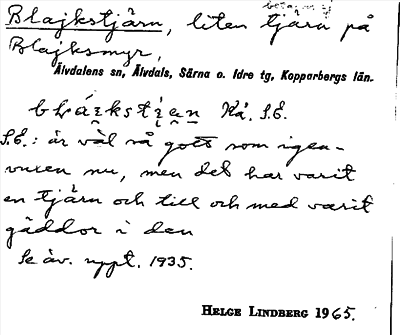 Blajkstjärn, liten tjärn på
Blajksmyr,
Älvdalens sn, Älvdals, Särna o. Idre tg, Kopparbergs län.
Kå. S.E.
S.E.: är väl så gott som igen-
vuxen nu, men det har varit
en tjärn och till och med varit
gäddor i den
Se äv. uppt. 1935.
HELGE LINDBERG 1965.